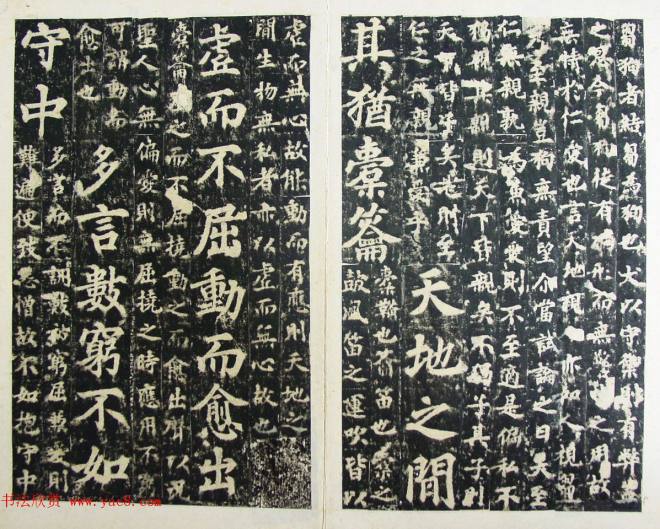 芻狗者結芻為狗也犬以守禦則有弊蓋
之恩今芻狗徒有狗形而無警吠之用故
無情於仁愛也言天地視人亦如人視芻
至親言狗無責望尒當試論之曰夫至
仁無親孰為兼愛愛則不至適是偏私不
獨親其親則天下皆親矣不獨子其子則
天下皆子矣是則至
仁之無親兼愛乎
天地之間
其猶橐籥
橐鞴也籥笛也橐之
鼓風笛之運吹皆以
虛而無心故能動而有應則天地之
間生物無私者亦以虛而無心故也
虛而不屈動而愈出
橐籥虛之而不屈撓動之而愈出聲以況
聖人心無偏愛則無屈撓之時應用不窮
可謂動而
愈出也
多言數窮不如
守中
多言而不酬數被窮屈兼愛則
難遍便致怨憎故不如抱守中
书法欣赏 www.yac8.com